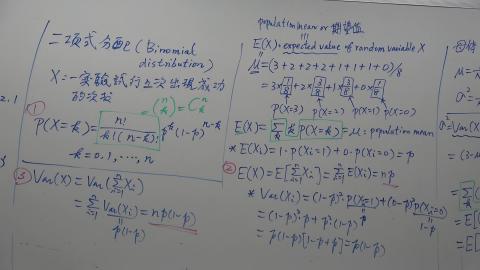 二項式分配 (Binomial distribution)
X:一實驗試行n次出現成功的次數
2.1
①
= (n k) = C n k
P(X=k) = n!/k!(n-k)! p^k(1-p)^{n-k}
k=0,1,...,n
③ Var(X) = Var(Σ_{i=1}^n Xi)
= Σ_{i=1}^n Var(Xi) = np(1-p)
p(1-p)
population mean or 期望值
E(X): expected value of random variable X
μ = (3+2+2+2+1+1+1+0)/8
= 3×1/8+2×3/8+1×3/8+0×1/8
P(X=3) P(X=2) P(X=1) P(X=0)
E(X) = Σ_k k P(X=k) = μ : population mean
* E(Xi) = 1·P(Xi=1)+0·P(Xi=0) = p
② E(X) = E[Σ_{i=1}^n Xi] = Σ_{i=1}^n E(Xi) = np
* Var(Xi) = (1-p)²·P(Xi=1)+(0-p)²P(Xi=0)
p 1-p
= (1-p)²·p+p²·(1-p)
= p(1-p)[1-p+p] = p(1-p)
μ =
σ² =
σ² = Var(X)
= (3-μ
= Σ
= E[
= E[